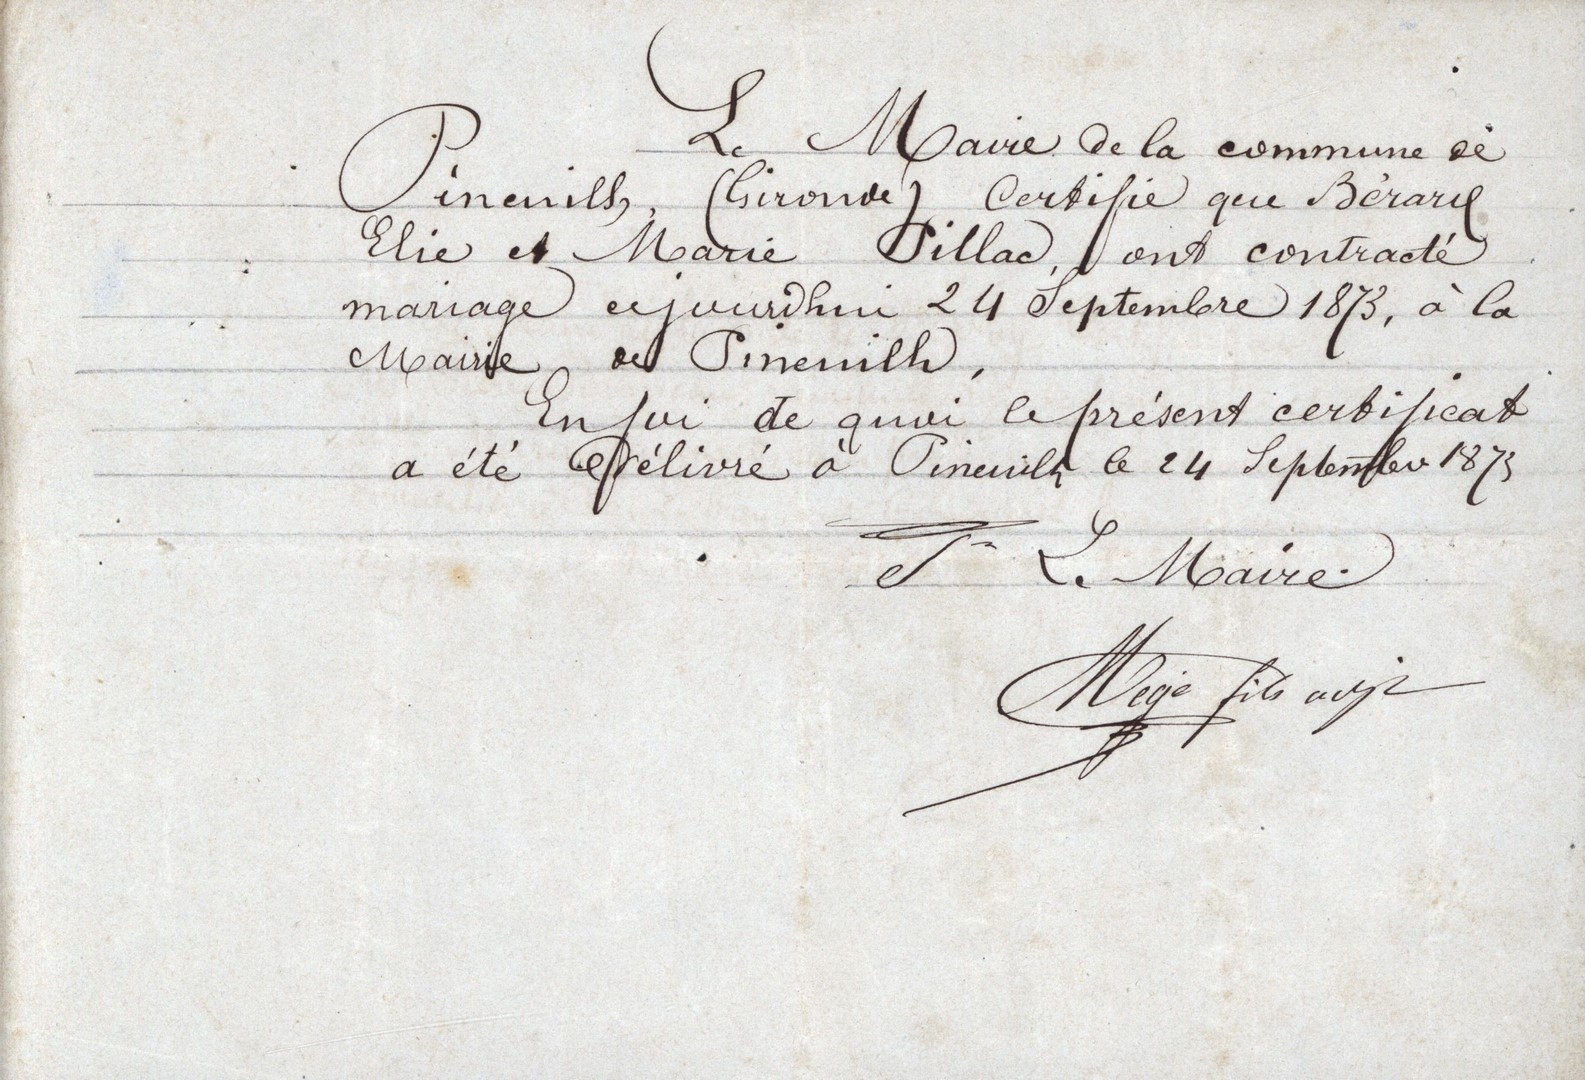 Le Maire de la commune de
Pineuilh, (Gironde) Certifie que Bérard
Elie et Marie Pillac, ont contracté
mariage cejourdhui 24 Septembre 1873, à la
Mairie de Pineuilh,
En foi de quoi le présent certificat
a été délivré à Pineuilh le 24 Septembre 1873
Pr Le Maire.
Mege fils adjt